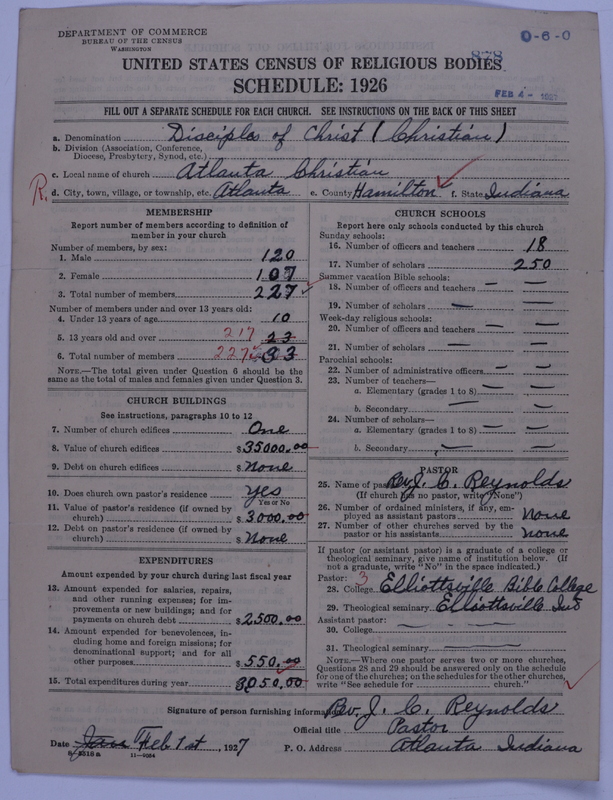 DEPARTMENT OF COMMERCE
BUREAU OF THE CENSUS
WASHINGTON
0-6-0
878
UNITED STATES CENSUS OF RELIGIOUS BODIES
SCHEDULE: 1926
FEB 4 - 1927
FILL OUT A SEPARATE SCHEDULE FOR EACH CHURCH. SEE INSTRUCTIONS ON THE BACK OF THIS SHEET
a. Denomination Disciples of Christ (Christian)
b. Division (Association, Conference, Diocese, Presbytery, Synod, etc.)
c. Local name of church Atlanta Christian
R. d. City, town, village, or township, etc. Atlanta e. County Hamilton f. State Indiana
MEMBERSHIP
Report number of members according to definition of member in your church
Number of members, by sex:
1. Male 120
2. Female 107
3. Total number of members 227
Number of members under and over 13 years old:
4. Under 13 years of age 10
5. 13 years old and over 217 23
6. Total number of members 227 33
NOTE.—The total given under Question 6 should be same as the total of males and females given under Question 3.
CHURCH BUILDINGS
See instructions, paragraphs 10 to 12
7. Number of church edifices One
8. Value of church edifices $35000.00
9. Debt on church edifices $None
10. Does church own pastor's residence Yes
Yes or No
11. Value of pastor's residence (if owned by church) $3000.00
12. Debt on pastor's residence (if owned by church) $None
EXPENDITURES
Amount expended by your church during last fiscal year
13. Amount expended for salaries, repairs, and other running expenses; for improvements or new buildings; and for payments on church debt $2500.00
14. Amount expended for benevolences, including home and foreign missions; for denominational support; and for all other purposes $550.00
15. Total expenditures during year 3050.00
CHURCH SCHOOLS
Report here only schools conducted by this church
Sunday schools:
16. Number of officers and teachers 18
17. Number of scholars 250
Summer vacation Bible schools:
18. Number of officers and teachers — —
19. Number of scholars — —
Week-day religious schools:
20. Number of officers and teachers — —
21. Number of scholars — —
Parochial schools:
22. Number of administrative officers — —
23. Number of teachers—
a. Elementary (grades 1 to 8) — —
b. Secondary — —
24. Number of scholars—
a. Elementary (grades 1 to 8) — —
b. Secondary — —
PASTOR
25. Name of pastor Rev. J. C. Reynolds
(If church has no pastor, write "None")
26. Number of ordained ministers, if any, employed as assistant pastors None
27. Number of other churches served by the pastor or his assistants None
If pastor (or assistant pastor) is a graduate of a college or theological seminary, give name of institution below. (If not a graduate, write "No" in the space indicated.)
Pastor: 3
28. College Elliottsville Bible College
29. Theological seminary Elliottsville Ind
Assistant pastor:
30. College — —
31. Theological seminary —
NOTE.—Where one pastor serves two or more churches, Questions 28 and 29 should be answered only on the schedule for one of the churches; on the schedules for the other churches, write "See schedule for ........ church."
Signature of person furnishing information Rev. J. C. Reynolds
Official title Pastor
Date Jan Feb 1st, 1927 P. O. Address Atlanta Indiana
8-2518a 11-9034